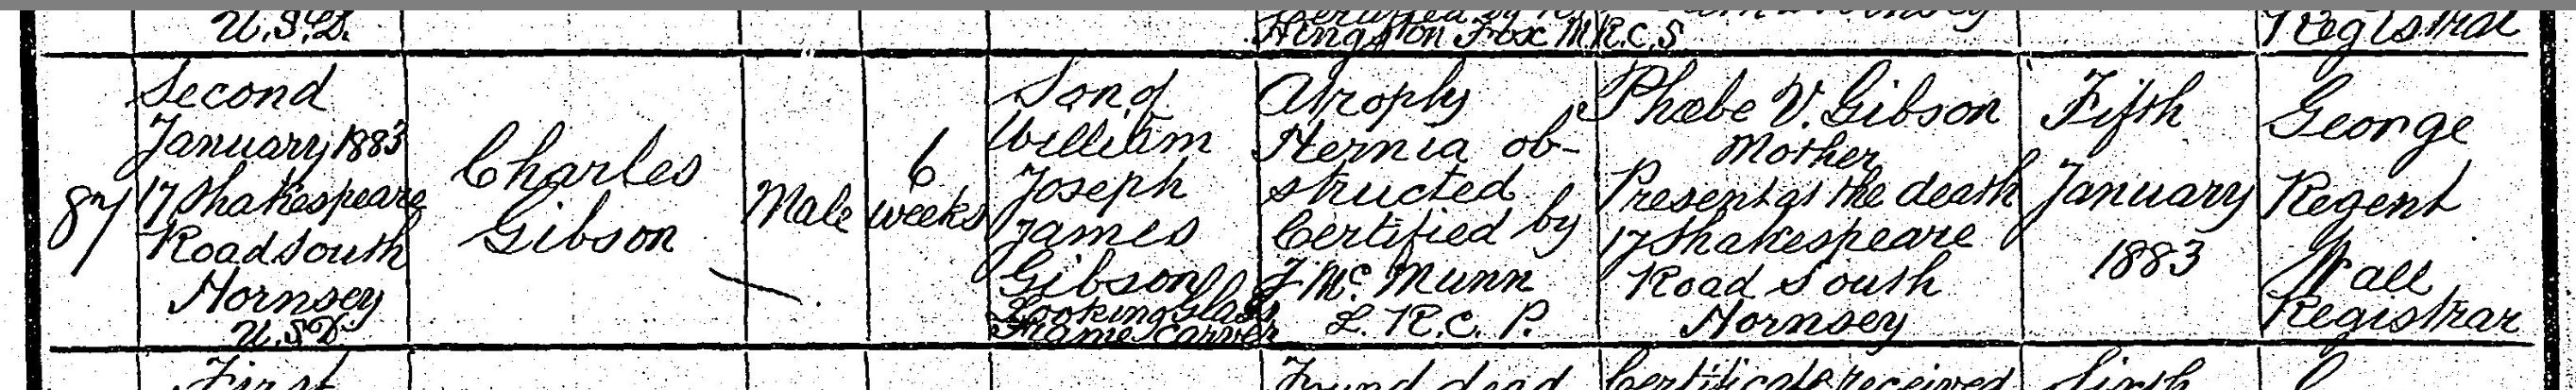 U.S.D.
Hingston Fox M.R.C.S
Registrar
87
Second
January 1883
17 Shakespeare
Road South
Hornsey
U.S.D
Charles
Gibson
Male
6
weeks
Son of
William
Joseph
James
Gibson
Looking Glass
Frame Carver
Atrophy
Hernia ob-
structed
Certified by
J. Mc. Munn
L. R. C. P.
Phœbe V. Gibson
Mother
Present at the death
17 Shakespeare
Road South
Hornsey
Fifth
January
1883
George
Regent
Wall
Registrar
First
Found dead
Certificate received
Sixth